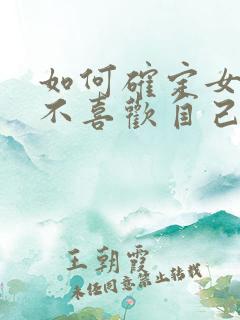 如何確定女
不喜歡自己
王朝霞
未任同意禁止转载